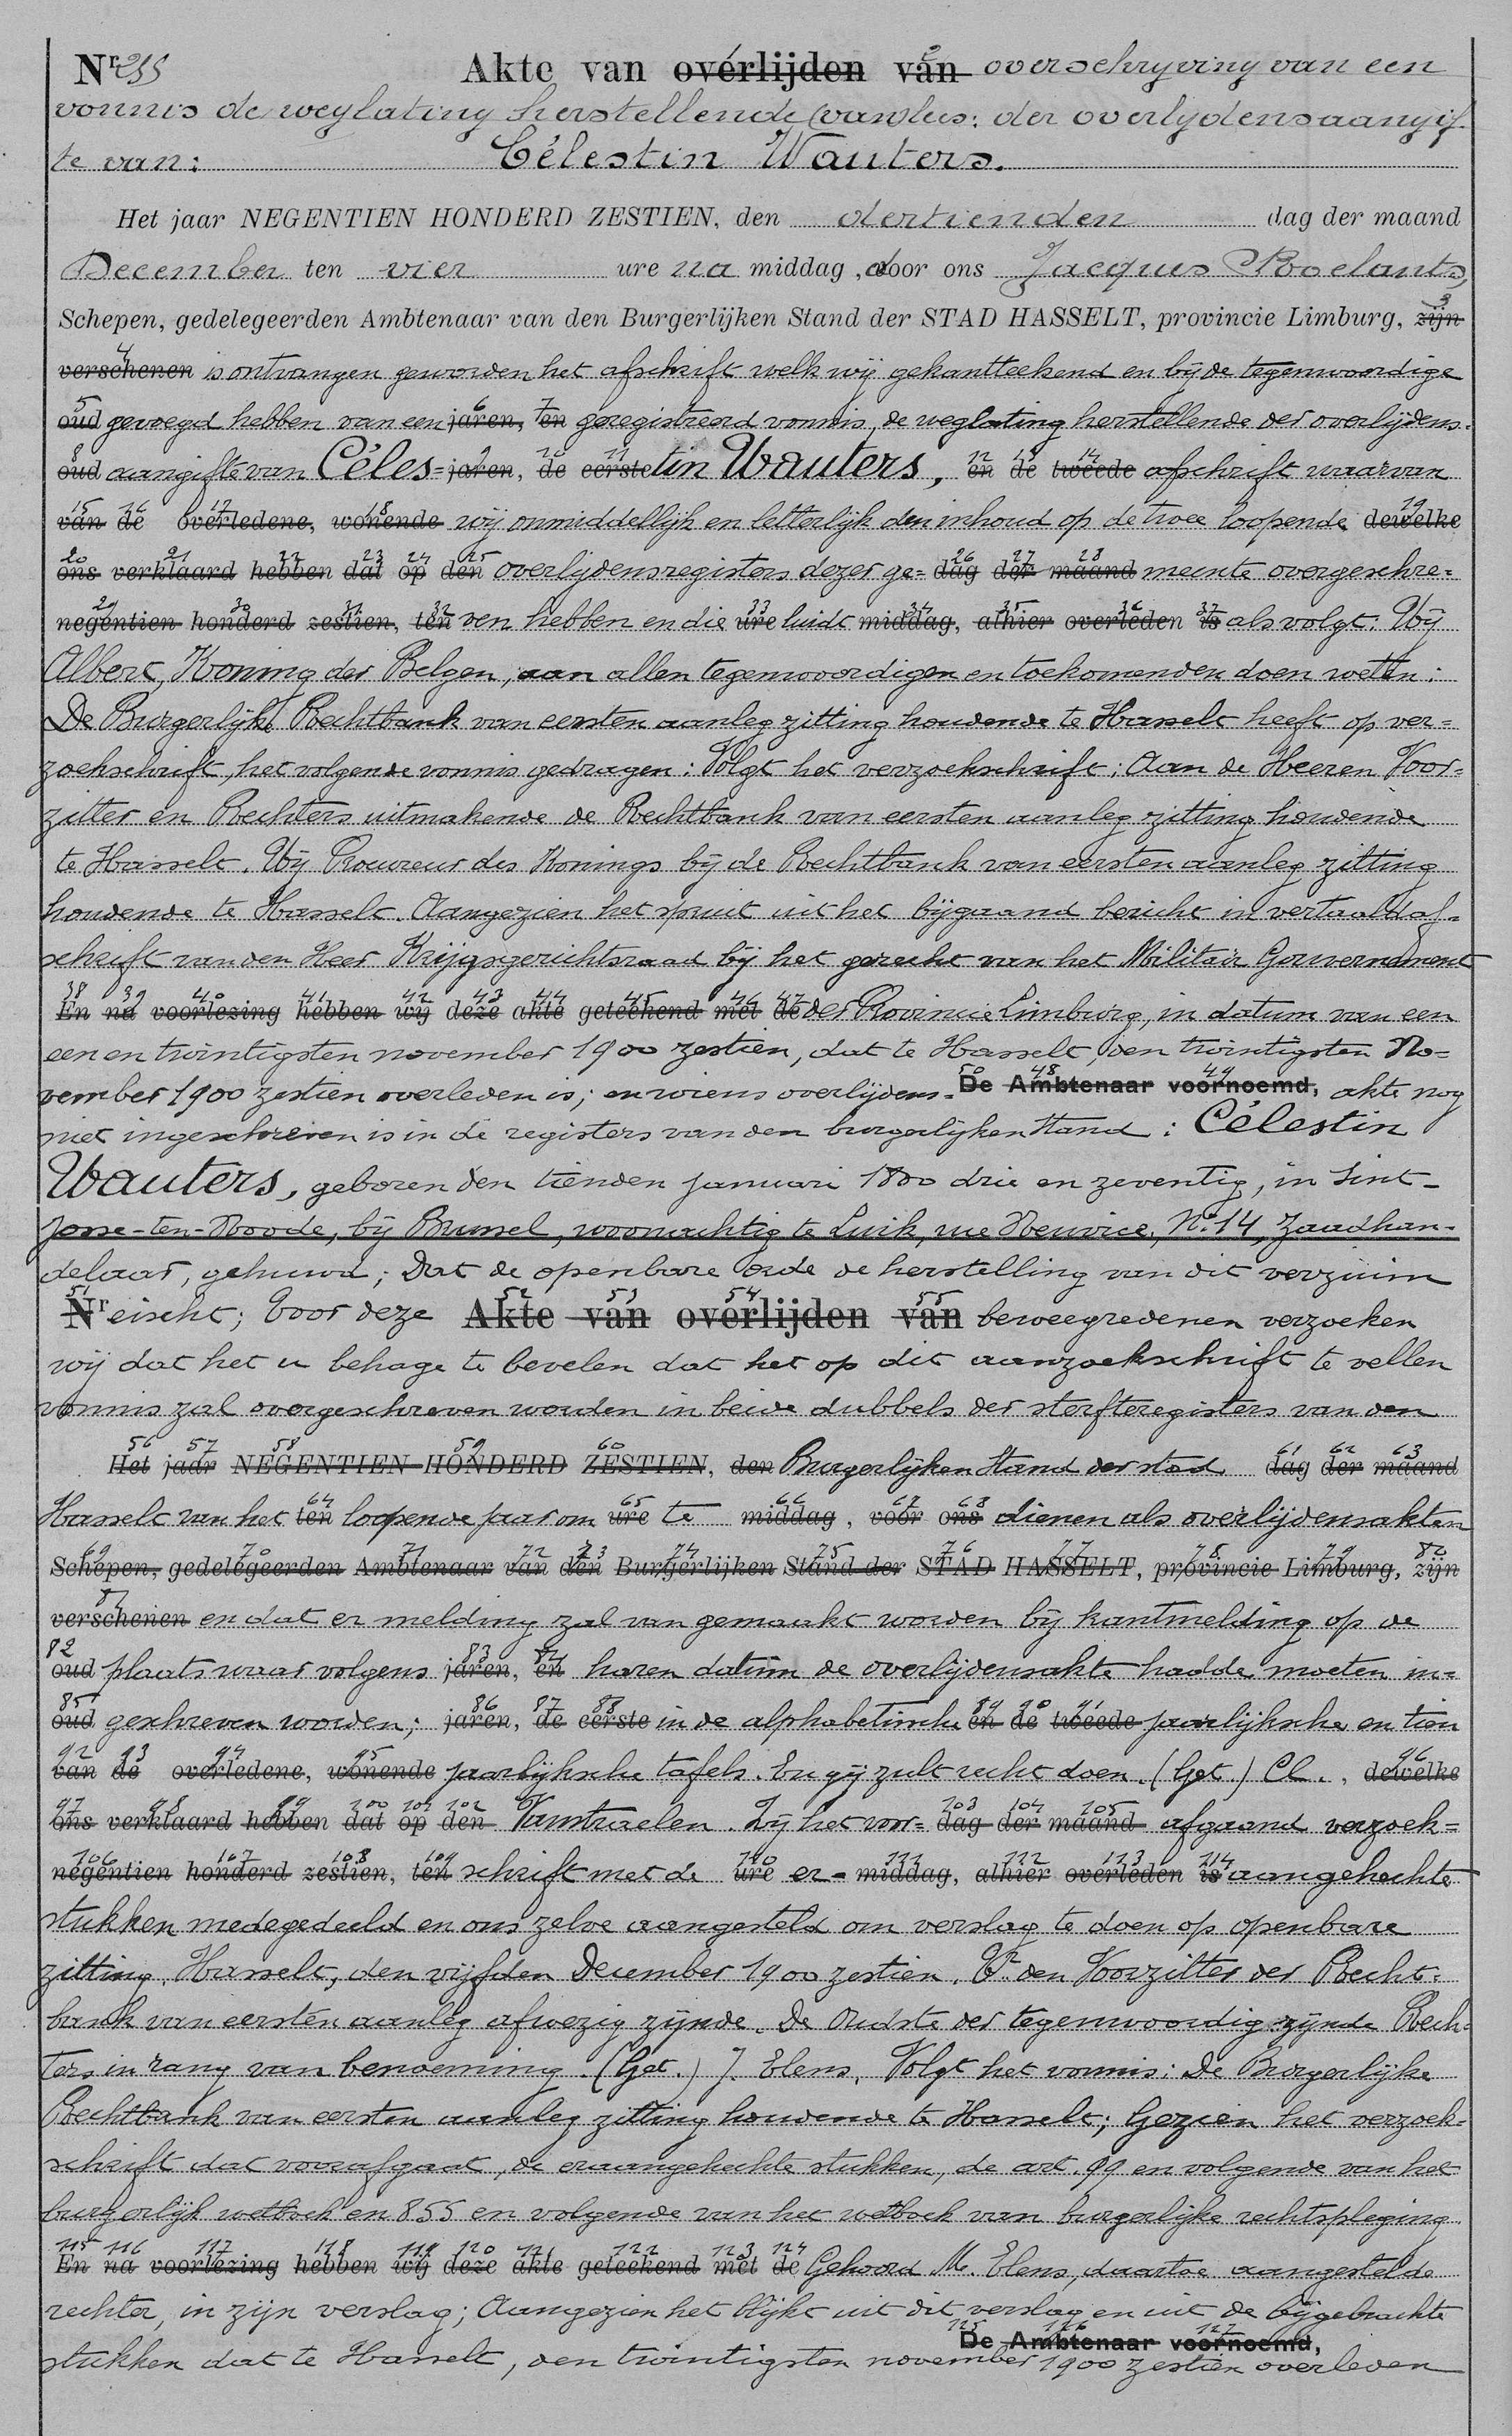 Nr 255 Akte van overlijden van overschrijving van een
vonnis de weglating herstellende (van) lees: der overlydensaangif-
te van: Célestin Wauters.
Het jaar NEGENTIEN HONDERD ZESTIEN, den dertienden dag der maand
December ten vier ure na middag, door ons Jacques Roelants,
Schepen, gedelegeerden Ambtenaar van den Burgerlijken Stand der STAD HASSELT, provincie Limburg, 3 zijn
4 verschenen is ontvangen geworden het afschrift welk wij gekantteekend en bij de tegenwoordige
5 oud gevoegd hebben van een 6 jaren, 7 ten geregistreerd vonnis, de weglating herstellende der overlijdens-
8 oud aangifte van Céles= 9 jaren, 10 de 11 eerste tin Wauters, 12 en 13 de 14 tweede afschrift waarvan
15 van 16 de 17 overledene, 18 wonende wij onmiddellijk en letterlijk den inhoud op de twee loopende 19 dewelke
20 ons 21 verklaard 22 hebben 23 dat 24 op 25 den overlijdensregisters dezer ge= 26 dag 27 der 28 maand meente overgeschre=
29 negentien 30 honderd 31 zestien, 32 ten ven hebben en die 33 ure luidt 34 middag, 35 alhier 36 overleden 37 is als volgt: Wij
Albert, Koning der Belgen, aan allen tegenwoordigen en toekomenden doen weten:
De Burgerlijke Rechtbank van eersten aanleg zitting houdende te Hasselt heeft op ver=
zoekschrift, het volgende vonnis gedragen: Volgt het verzoekschrift: Aan de Heeren Voor=
zitter en Rechters uitmakende de Rechtbank van eersten aanleg zitting houdende
te Hasselt. Wij Procureur des Konings bij de Rechtbank van eersten aanleg zitting
houdende te Hasselt. Aangezien het spruit uit het bijgaand bericht in vertaald af=
schrift van den Heer Krijgsgerichtsraad bij het gerecht van het Militair Gouvernement
38 En 39 na 40 voorlezing 41 hebben 42 wij 43 deze 44 akte 45 geteekend 46 met 47 de der Provincie Limburg, in datum van een
een en twintigsten november 1900 zestien, dat te Hasselt, den twintigsten No=
vember 1900 zestien overleden is; en wiens overlijdens- 50 De 48 Ambtenaar 49 voornoemd, akte nog
niet ingeschreven is in de registers van den burgerlijken stand: Célestin
Wauters, geboren den tienden januari 1800 drie en zeventig, in Sint-
Josse-ten-Noode, bij Brussel, woonachtig te Luik, rue Neuvice, No 14, zaadhan-
delaar, gehuwd; Dat de openbare orde de herstelling van dit verzuim
51 Nr eischt; Voor deze 52 Akte 53 van 54 overlijden 55 van beweegredenen verzoeken
wij dat het u behage te bevelen dat het op dit aanzoekschrift te vellen
vonnis zal overgeschreven worden in beide dubbels der sterfteregisters van den
56 Het 57 jaar 58 NEGENTIEN 59 HONDERD 60 ZESTIEN, den Burgerlijken Stand der stad 61 dag 62 der 63 maand
Hasselt van het 64 ten loopende jaar om 65 ure te 66 middag, 67 voor 68 ons dienen als overlijdensakten
69 Schepen, 70 gedelegeerden 71 Ambtenaar 72 van 73 den 74 Burgerlijken 75 Stand der 76 STAD 77 HASSELT, 78 provincie 79 Limburg, 80 zijn
81 verschenen en dat er melding zal van gemaakt worden bij kantmelding op de
82 oud plaats waar volgens 83 jaren, 84 en haren datum de overlijdensakte hadde moeten in=
85 oud geschreven worden; 86 jaren, 87 de 88 eerste in de alphabetische 89 en 90 de 91 tweede jaarlijksche en tien
92 van 93 de 94 overledene, 95 wonende jaarlijksche tafels. En gij zult recht doen. (Get.) Cl., 96 dewelke
97 ons 98 verklaard 99 hebben 100 dat 101 op 102 den Vanstraelen. Zij het voor= 103 dag 104 der 105 maand afgaand verzoek=
106 negentien 107 honderd 108 zestien, 109 ten schrift met de 110 ure er- 111 middag, 112 alhier 113 overleden 114 is aangehechte
stukken medegedeeld en ons zelve aangesteld om verslag te doen op openbare
zitting. Hasselt, den vijfden December 1900 zestien. Vr. den Voorzitter der Recht=
bank van eersten aanleg afwezig zijnde. De Oudste der tegenwoordig zijnde Rech=
ters in rang van benoeming. (Get.) J. Elens. Volgt het vonnis: De Burgerlijke
Rechtbank van eersten aanleg zitting houdende te Hasselt; Gezien het verzoek=
schrift dat voorafgaat, de eraangehechte stukken, de art. 99 en volgende van het
burgerlijk wetboek en 855 en volgende van het wetboek van burgerlijke rechtspleging
115 En 116 na 117 voorlezing 118 hebben 119 wij 120 deze 121 akte 122 geteekend 123 met 124 de Gehoord Mr. Elens, daartoe aangestelde
rechter, in zijn verslag; Aangezien het blijkt uit dit verslag en uit de bijgebrachte
125 De 126 Ambtenaar 127 voornoemd,
stukken dat te Hasselt, den twintigsten november 1900 zestien overleden